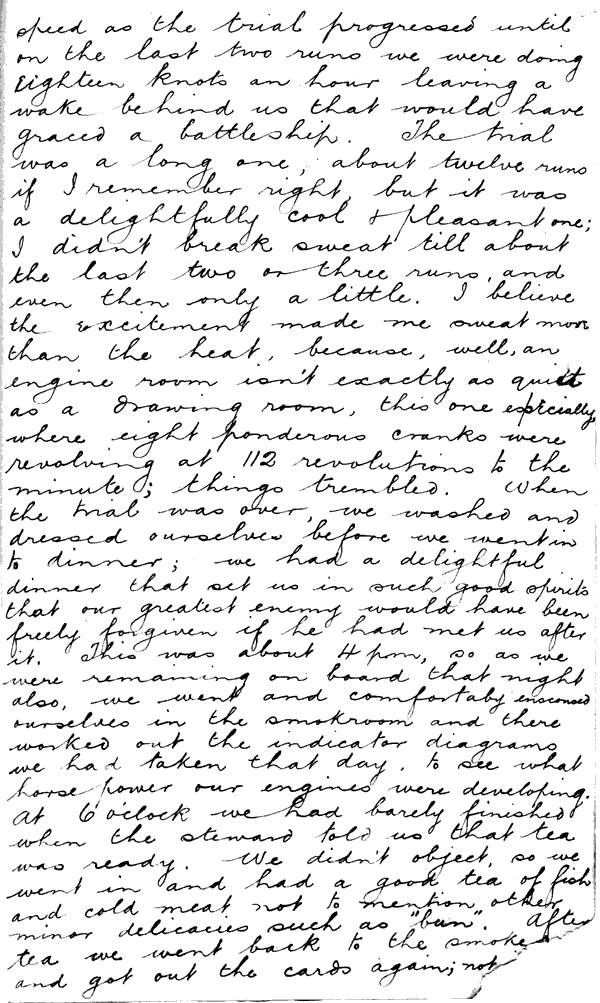 speed as the trial progressed until
on the last two runs we were doing
Eighteen knots an hour leaving a
wake behind us that would have
graced a battleship. The trial
was a long one, about twelve runs
if I remember right, but it was
a delightfully cool & pleasant one;
I didn't break sweat till about
the last two or three runs, and
even then only a little. I believe
the excitement made me sweat more
than the heat, because, well, an
engine room isn't exactly as quiet
as a drawing room, this one especially
where eight ponderous cranks were
revolving at 112 revolutions to the
minute; things trembled. When
the trial was over, we washed and
dressed ourselves before we went in
to dinner; we had a delightful
dinner that set us in such good spirits
that our greatest enemy would have been
freely forgiven if he had met us after
it. This was about 4 pm, so as we
were remaining on board that night
also, we went and comfortaby ensconced
ourselves in the smokroom and there
worked out the indicator diagrams
we had taken that day, to see what
horse power our engines were developing.
At 6 o'clock we had barely finished
when the steward told us that tea
was ready. We didn't object, so we
went in and had a good tea of fish
and cold meat not to mention other
minor delicacies such as "bun". After
tea we went back to the smoke
and got out the cards again; not